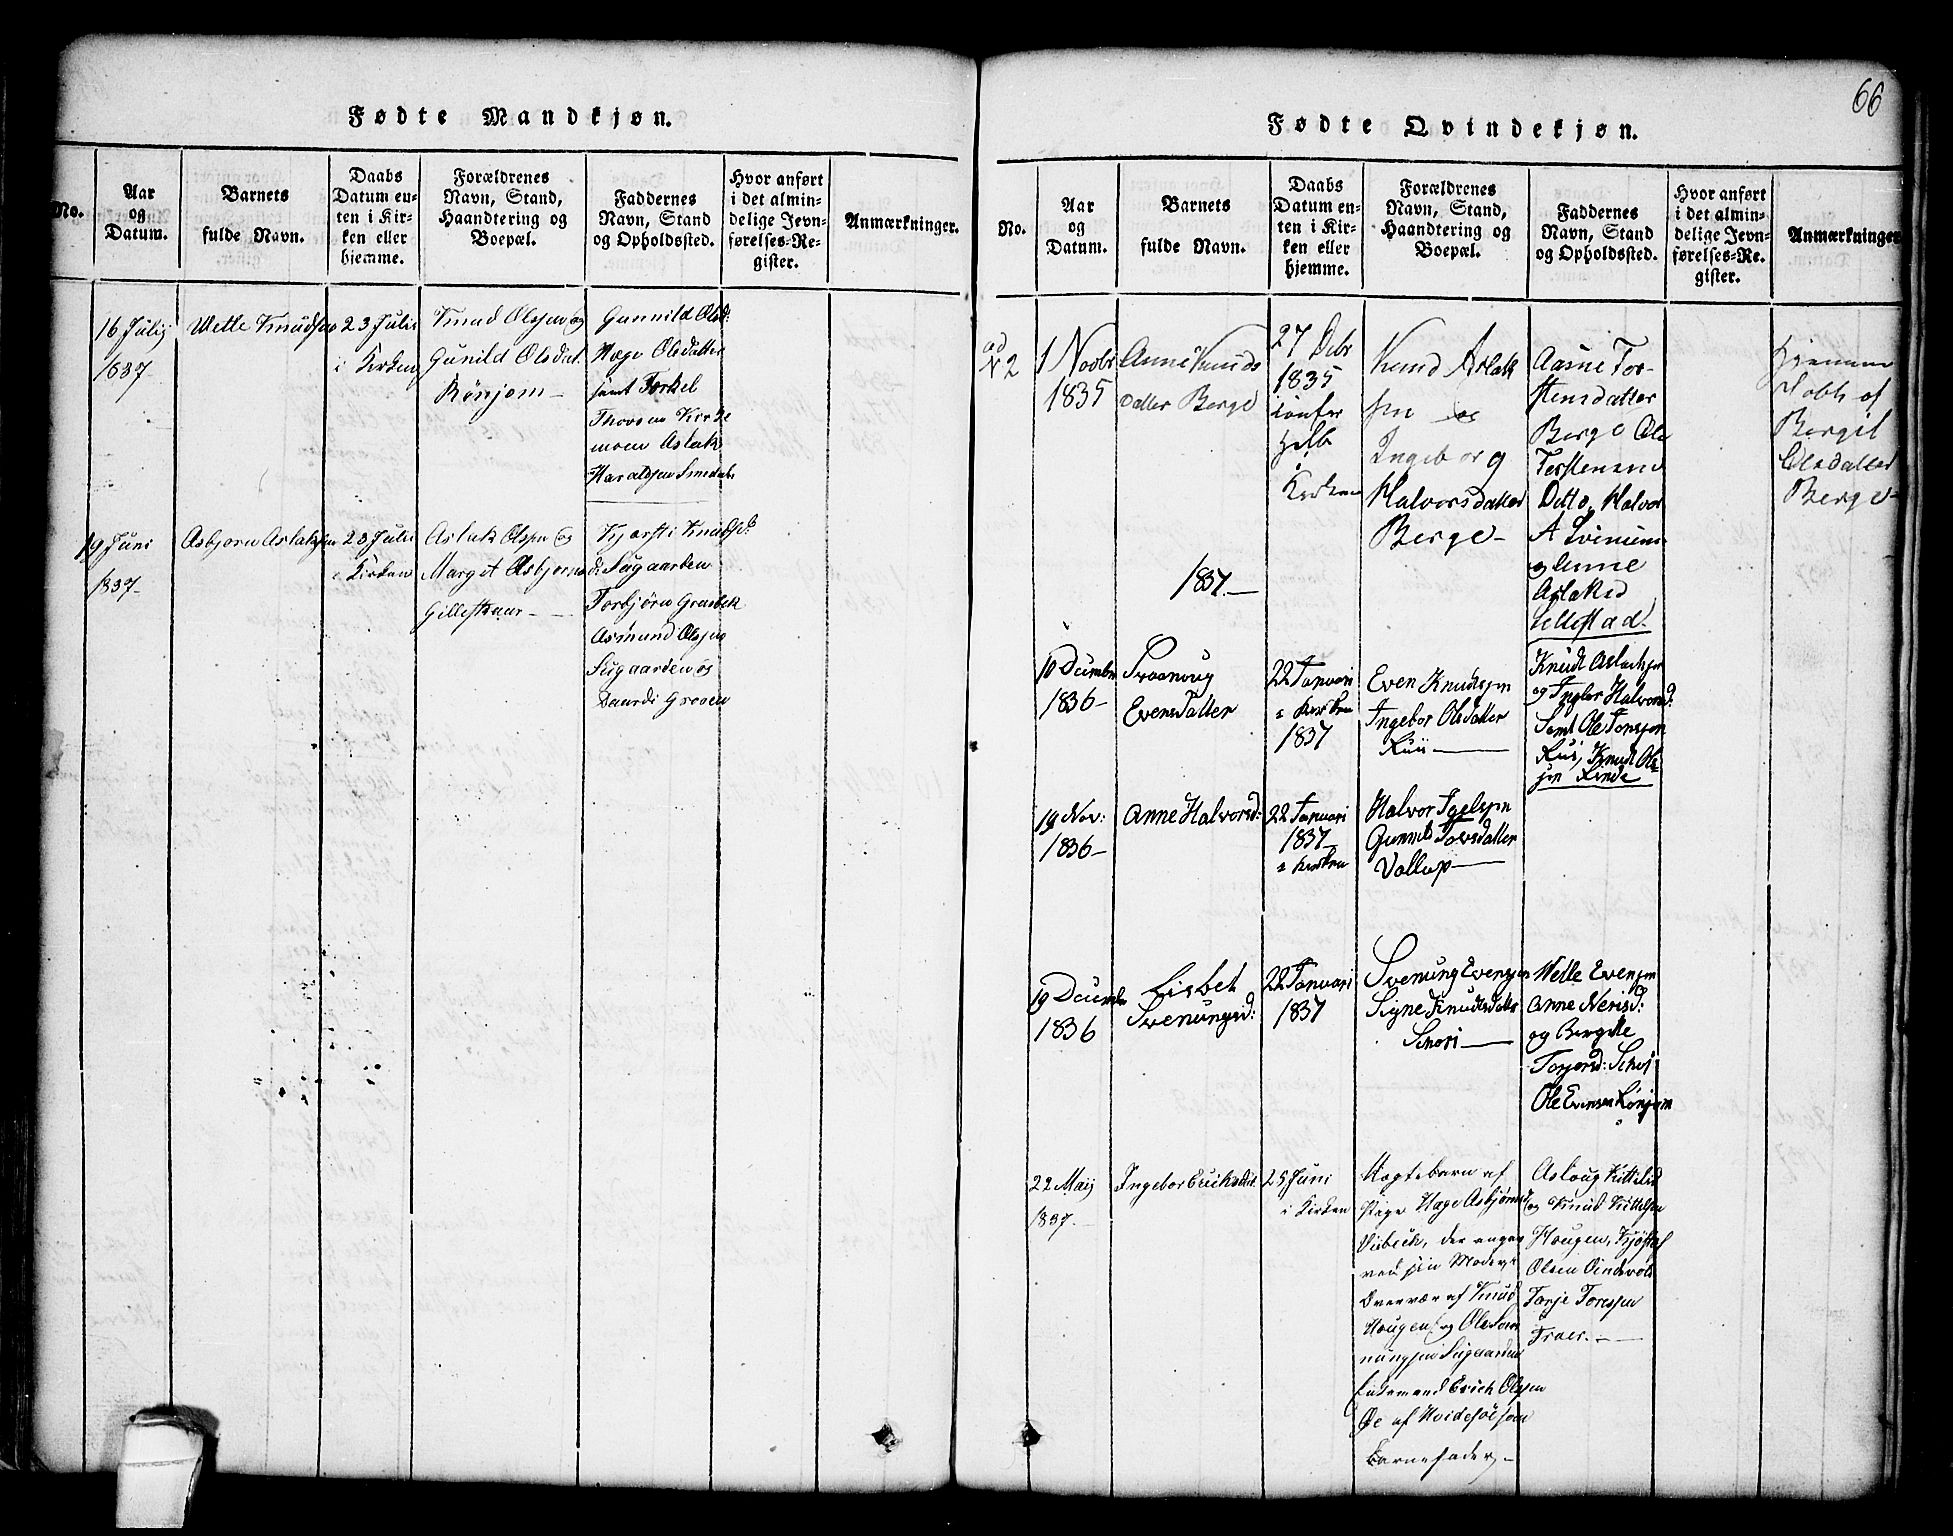 66
Fødte Mandkjøn.
No.
Aar
og
Datum.
Barnets
fulde Navn.
Daabs
Datum en-
ten i Kir-
ken eller
hjemme.
Forældrenes
Navn, Stand,
Haandtering og
Boepæl.
Faddernes
Navn, Stand
og Opholdssted.
Hvor anført
i det almin-
delige Jevn-
førelses-Re-
gister.
Anmærkninger.
16 Julij
1837
Wetle Knudsen
23 Julii
i Kirken
Knud Olssen og
Gunild Olsdat.
Rønjom
Gunnild Olsd:
Hæge Olsdatter
samt Torkel
Thovsen Kirke
moen Aslak
Haraldsen Smedal
19 Juni
1837
Asbjørn Aslaksen
23 Julii
i Kirken
Aslak Olssen og
Marget Asbjørns
d:
Kjersti Knudsd:
Sugaarden
Torbjørn Grasbek
Asmund Olssen
Sugaarden og
Saardi Groven
Fødte Qvindekjøn.
No.
Aar
og
Datum.
Barnets
fulde Navn.
Daabs
Datum en-
ten i Kir-
ken eller
hjemme.
Forældrenes
Navn, Stand,
Haandtering og
Boepæl.
Faddernes
Navn, Stand
og Opholdssted.
Hvor anført
i det almin-
delige Jevn-
førelses-Re-
gister.
Anmærkninger
ad
N 2
1 Novbr
1835
Anne Knuds
datter Berge
27 Debr
1835
i
Kirken
Knud Aslak
sen og
Ingeborg
Halvorsdatter
Berge
Aasne Tor-
stensdatter
Berge Ole
Torstensen
Ditto, Halvor
A
og Anne
Aslaksd
Hjemme
Døbt af
Bergit
Olsdatter
Berge
1837
10 Decembr
1836
Svanoug
Evensdatter
22 Januari
i Kirken
1837
Even Knudsen
Ingebor Olsdatter
Ruii
Knudt Aslachsen
og Ingbor Halvorsd:
Samt Ole Tonsen
Rui, Knudt Ol-
sen Rinde
19 Nov:
1836
Anne Halvorsd:
22 Januari
1837
i Kirken
Halvor Igelsen
Gunnild Torsdatter
Vallup
19 Decembr
1836
Lisbet
Svenungsd:
22 Januari
1837
Svenung Evensen
Signe Knudsdatter
Wetle Evensen
Anne Nerisd:
og Bergitte
Torjorsd:
Ole Evensen Rønjom
22 Maij
1837
Ingebor Eriksdat.
25 Juni
i Kirken
Uægtebarn af
Pige Hæge Asbjørnsd
Visbeck, der angav
ved sin Moders
Overvær af Knud
Hougen og Ole Sve-
nungsen Sugaarden
Enkemand Erich Olssen
Øe af Hvidesøe som
Barnefader
Asloug Kittilsd
og Knud Kittelsen
Hougen, Kjøstel
Olsen
Torje Toressen
Traer.